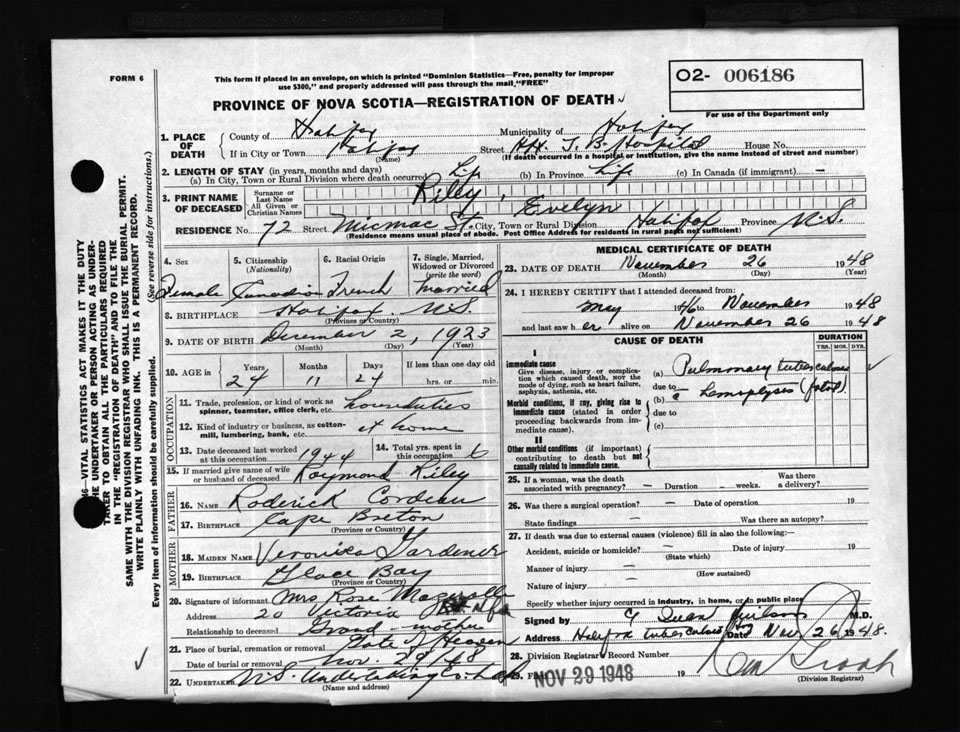 FORM 6
This form if placed in an envelope, on which is printed "Dominion Statistics—Free, penalty for improper
use $300," and properly addressed will pass through the mail "FREE"
PROVINCE OF NOVA SCOTIA—REGISTRATION OF DEATH
O2- 006186
For use of the Department only
1. PLACE OF DEATH County of Halifax Municipality of Halifax
If in City or Town Halifax (Name) Street Hfx. T. B. Hospital House No.
(If death occurred in a hospital or institution, give the name instead of street and number)
2. LENGTH OF STAY (in years, months and days)
(a) In City, Town or Rural Division where death occurred Life (b) In Province Life (c) In Canada (if immigrant) —
3. PRINT NAME OF DECEASED Surname or Last Name Riley,
All Given or Christian Names Evelyn
RESIDENCE No. 72 Street Micmac St. City, Town or Rural Division Halifax Province N.S.
(Residence means usual place of abode. Post Office Address for residents in rural parts not sufficient)
4. Sex Female
5. Citizenship (Nationality) Canadian
6. Racial Origin French
7. Single, Married, Widowed or Divorced (write the word) Married
8. BIRTHPLACE Halifax, N.S.
(Province or Country)
9. DATE OF BIRTH December 2, 1923
(Month) (Day) (Year)
10. AGE in Years Months Days If less than one day old
24 11 24 hrs. or min.
OCCUPATION
11. Trade, profession or kind of work as spinner, teamster, office clerk, etc. houseduties
12. Kind of industry or business, as cotton-mill, lumbering, bank, etc. at home
13. Date deceased last worked at this occupation 1944
14. Total yrs. spent in this occupation 6
15. If married give name of wife or husband of deceased Raymond Riley
FATHER
16. NAME Roderick
17. BIRTHPLACE Cape Breton
(Province or Country)
MOTHER
18. MAIDEN NAME Veronika Gardener
19. BIRTHPLACE Glace Bay
(Province or Country)
20. Signature of informant Mrs Rose
Address 20 Victoria
Relationship to deceased Grand mother
21. Place of burial, cremation or removal Gate of Heaven
Date of burial or removal Nov. 29/48
22. UNDERTAKER N.S. Undertaking Co.
(Name and address)
MEDICAL CERTIFICATE OF DEATH
23. DATE OF DEATH November 26 1948
(Month) (Day) (Year)
24. I HEREBY CERTIFY that I attended deceased from:
May 46 to November 1948
and last saw her alive on November 26 1948
CAUSE OF DEATH
DURATION
YRS. MOS. DYS.
I
Immediate cause
Give disease, injury or complication which caused death, not the mode of dying, such as heart failure, asphyxia, asthenia, etc.
(a) Pulmonary tuberculosis
due to
Morbid conditions, if any, giving rise to immediate cause (stated in order proceeding backwards from immediate cause).
(b) c̄ hemoptysis (fatal)
due to
(c)
II
Other morbid conditions (if important) contributing to death but not causally related to immediate cause.
25. If a woman, was the death associated with pregnancy? — Duration — weeks. Was there a delivery?
26. Was there a surgical operation? — Date of operation 19
State findings — Was there an autopsy?
27. If death was due to external causes (violence) fill in also the following:
Accident, suicide or homicide? Date of injury 19
(State which)
Manner of injury —
(How sustained)
Nature of injury —
Specify whether injury occurred in industry, in home, or in public place
Signed by M.D.
Address Halifax Tuberculosis Date Nov 26 1948.
28. Division Registrar's Record Number
NOV 29 1948 19
(Division Registrar)
VITAL STATISTICS ACT MAKES IT THE DUTY
THE UNDERTAKER OR PERSON ACTING AS UNDER-
TAKER TO OBTAIN ALL THE PARTICULARS REQUIRED
IN THE "REGISTRATION OF DEATH" AND TO FILE THE
SAME WITH THE DIVISION REGISTRAR WHO SHALL ISSUE THE BURIAL PERMIT.
WRITE PLAINLY WITH UNFADING INK. THIS IS A PERMANENT RECORD.
Every item of information should be carefully supplied. (See reverse side for instructions.)